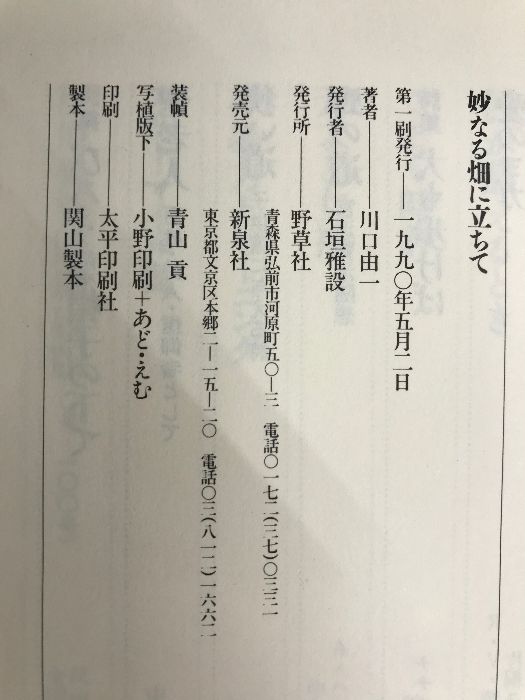 妙なる畑に立ちて
第一刷発行──一九九〇年五月二日
著者────川口由一
発行者───石垣雅設
発行所───野草社
青森県弘前市河原町五〇―三　電話〇一七二(三七)〇三三一
発売元───新泉社
東京都文京区本郷二―一五―二〇　電話〇三(八一二)一六六二
装幀────青山 貢
写植版下──小野印刷＋あど・えむ
印刷────太平印刷社
製本────関山製本